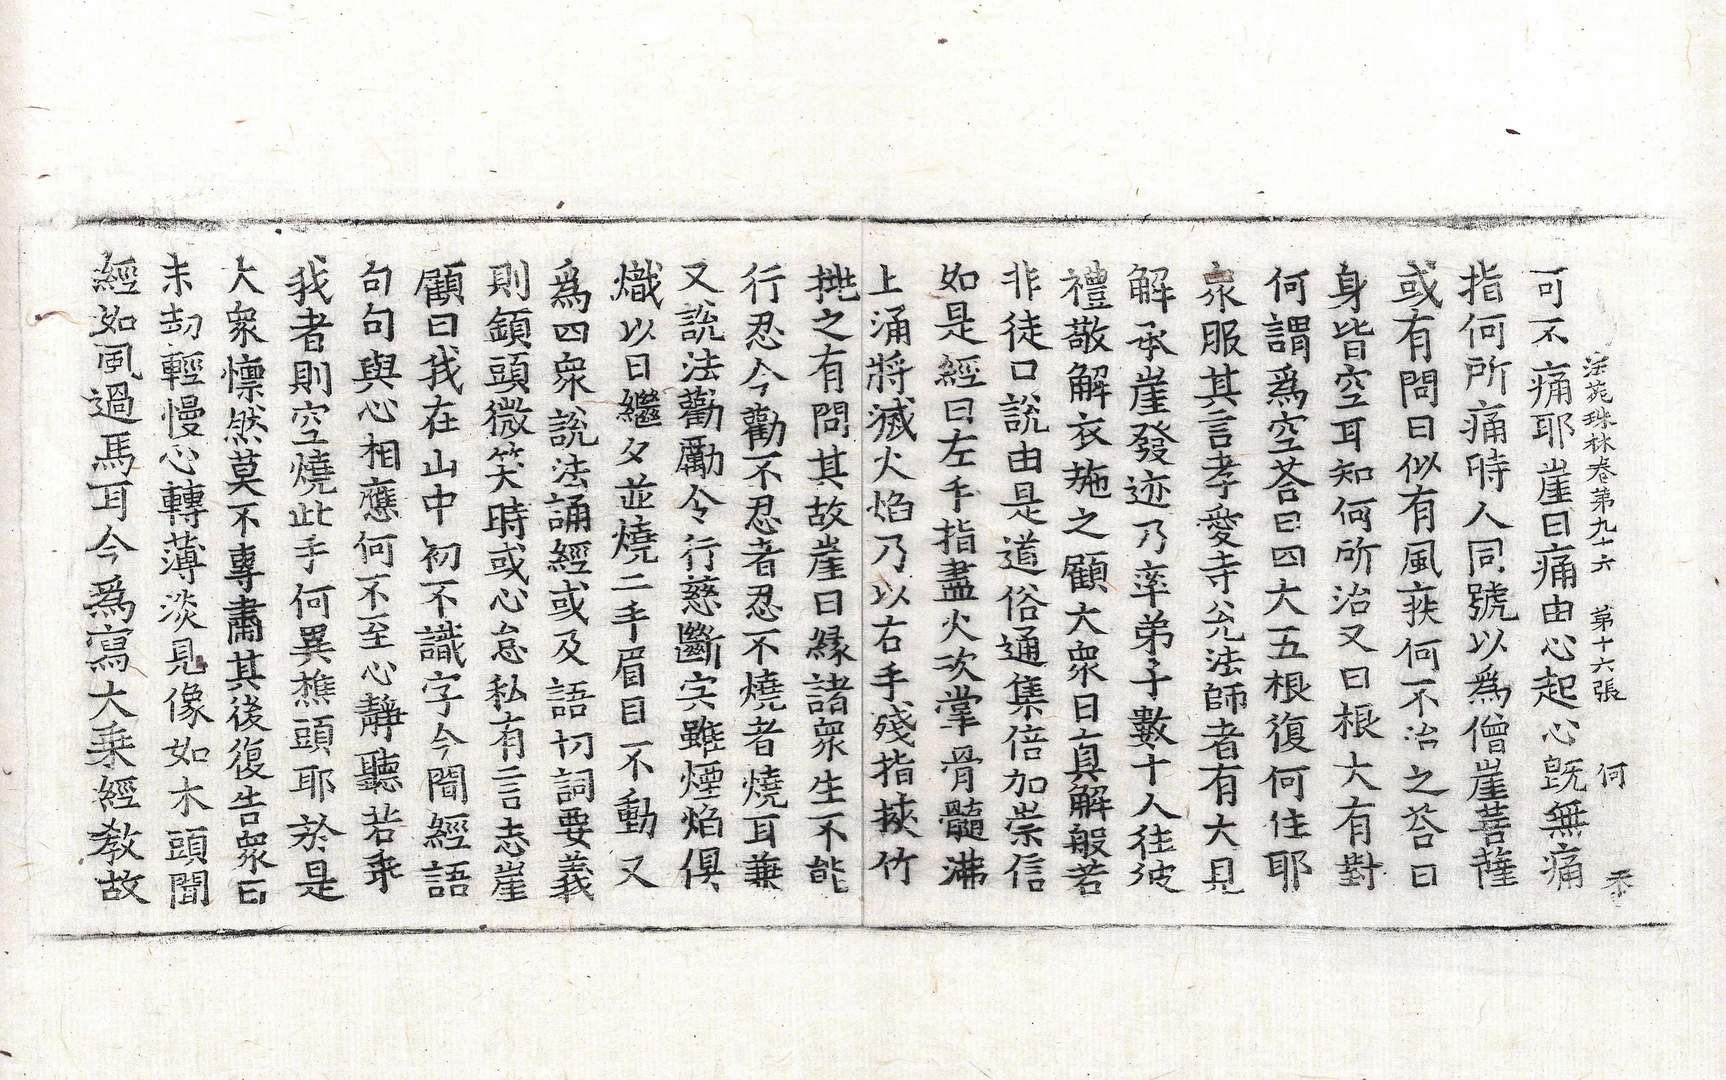 法苑珠林卷第九十六 第十六張 何
可不痛耶崖曰痛由心起心既無痛
指何所痛時人同號以爲僧崖菩薩
或有問曰似有風疾何不治之荅曰
身皆空耳知何所治又曰根大有對
何謂爲空荅曰四大五根復何住耶
衆服其言孝愛寺兊法師者有大見
解承崖發迹乃率弟子數十人往彼
禮敬解衣施之顧大衆曰真解般若
非徒口說由是道俗通集倍加崇信
如是經日左手指盡火次掌骨髓沸
上涌將滅火焰乃以右手殘指挾竹
挑之有問其故崖曰緣諸衆生不能
行忍今勸不忍者忍不燒者燒耳兼
又說法勸勵令行慈斷宍雖煙焰俱
熾以日繼夕並燒二手眉目不動又
爲四衆說法誦經或及語切詞要義
則頷頭微笑時或心怠私有言志崖
顧曰我在山中初不識字今聞經語
句句與心相應何不至心靜聽若乖
我者則空燒此手何異樵頭耶於是
大衆懍然莫不專肅其後復告衆曰
末劫輕慢心轉薄淡見像如木頭聞
經如風過馬耳今爲寫大乘經教故